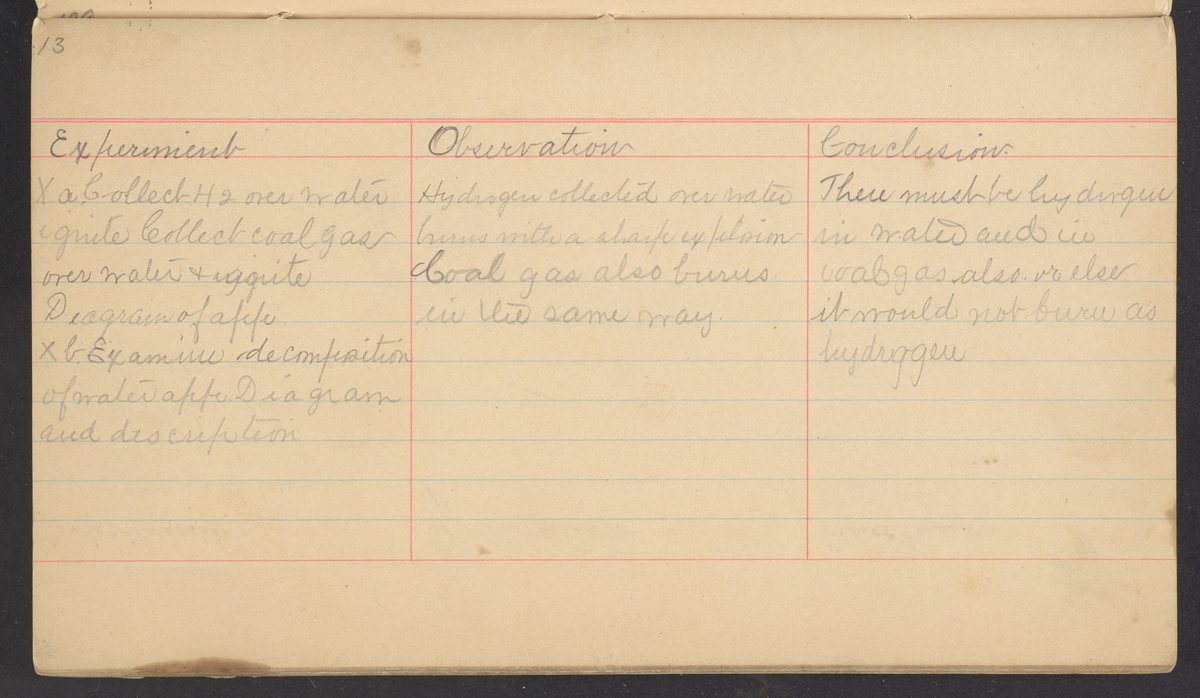 13
Experiment
X a Collect H2 over water
ignite Collect coal gas
over water + iggnite
Diagram of app.
X b Examine decomposition
of water app Diagram
and description
Observation
Hydrogen collected over water
burns with a sharp explosion
Coal gas also burns
in the same way
Conclusion
There must be hydrogen
in water and in
coal gas also or else
it would not burn as
hydroggen